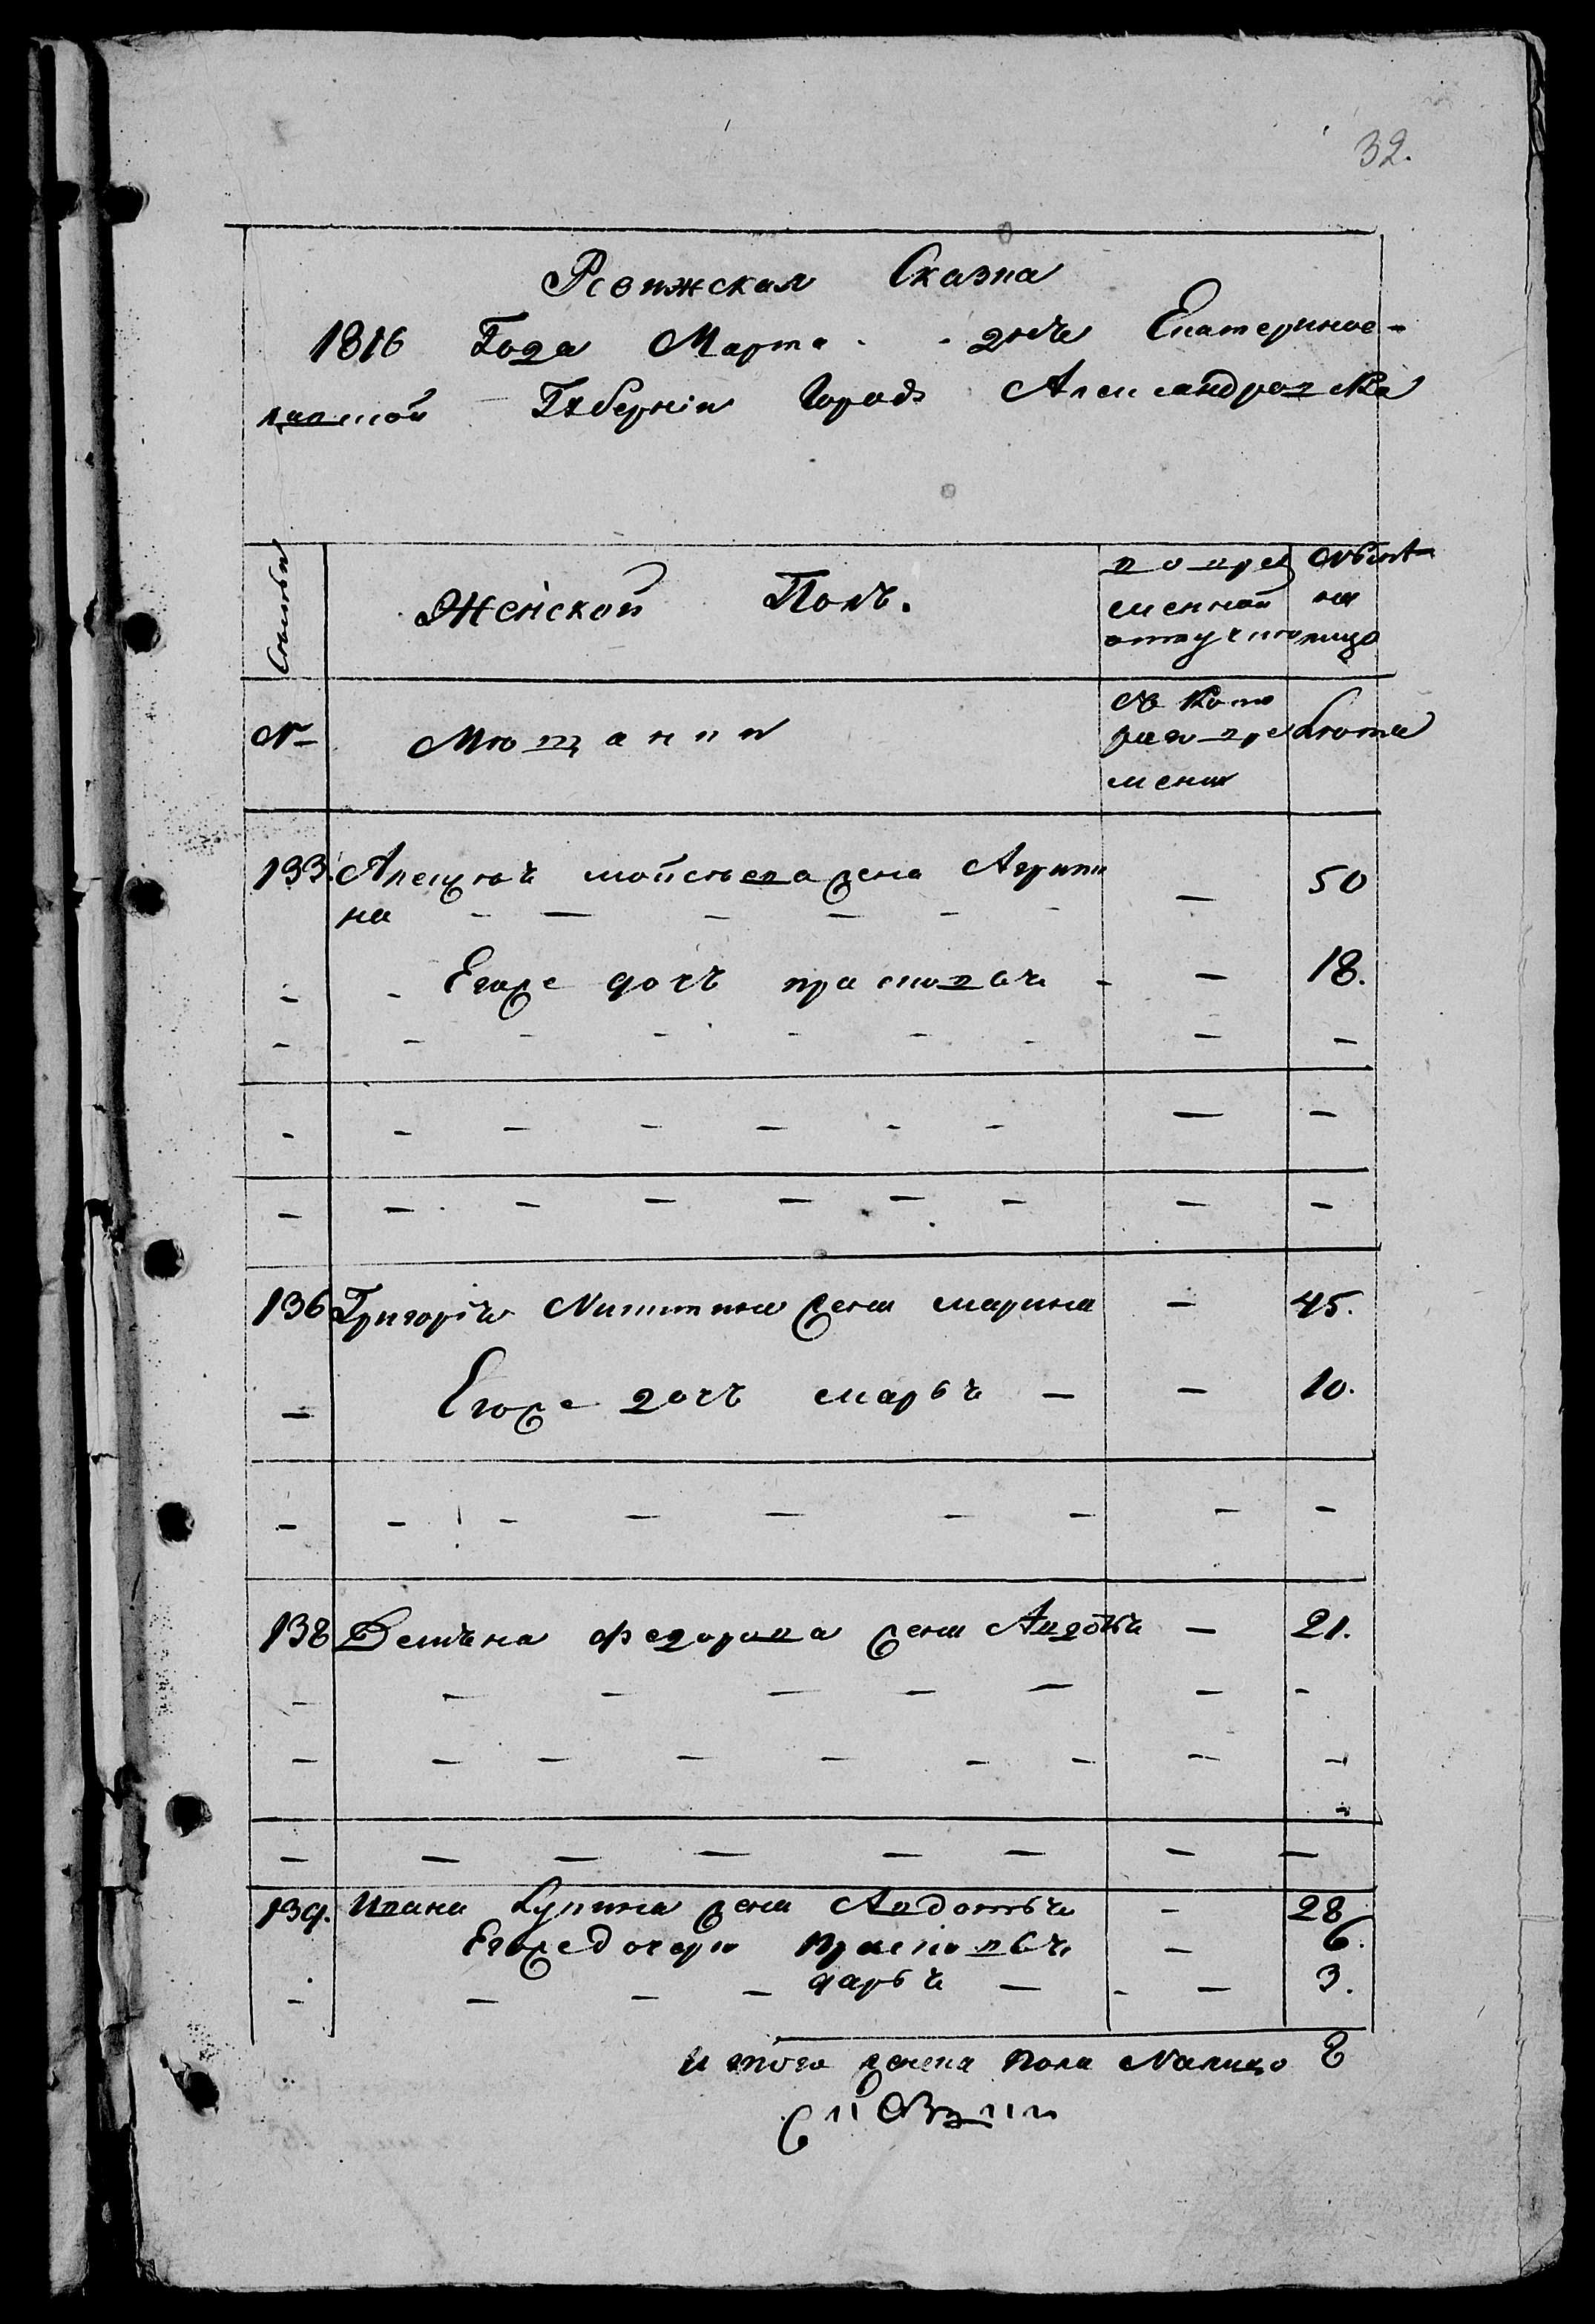 32.
Ревижская Сказка
1816 Года Марта дня Екатеринос-
лавской Губернiи Город Александровка
Семьи
Женской Полъ.
во вре
менной
отлучки
Нынѣ
на
лицо
№
Мѣщанки
Съ кото
раго вре
мени
Лѣта
133. Алексѣя Мойсѣева жена Агрипи
на - - - - - - - 50
- - Егоже дочь прасковья - - 18.
- - - - - - - - -
- - - - - - - - -
- - - - - - - - -
136 Григорiя Никитина жена марина - 45.
- Егоже дочь марья - - 10.
- - - - - - - - -
138 Демьяна федорова жена Авдотья - 21.
- - - - - - - -
- - - - - - - - -
- - - - - - - -
139. Ивана Купина жена Авдотья - 28
Егоже дочери Прасковья - 6.
- - - - дарья - - - 3.
Итого женска Пола Налицо 8